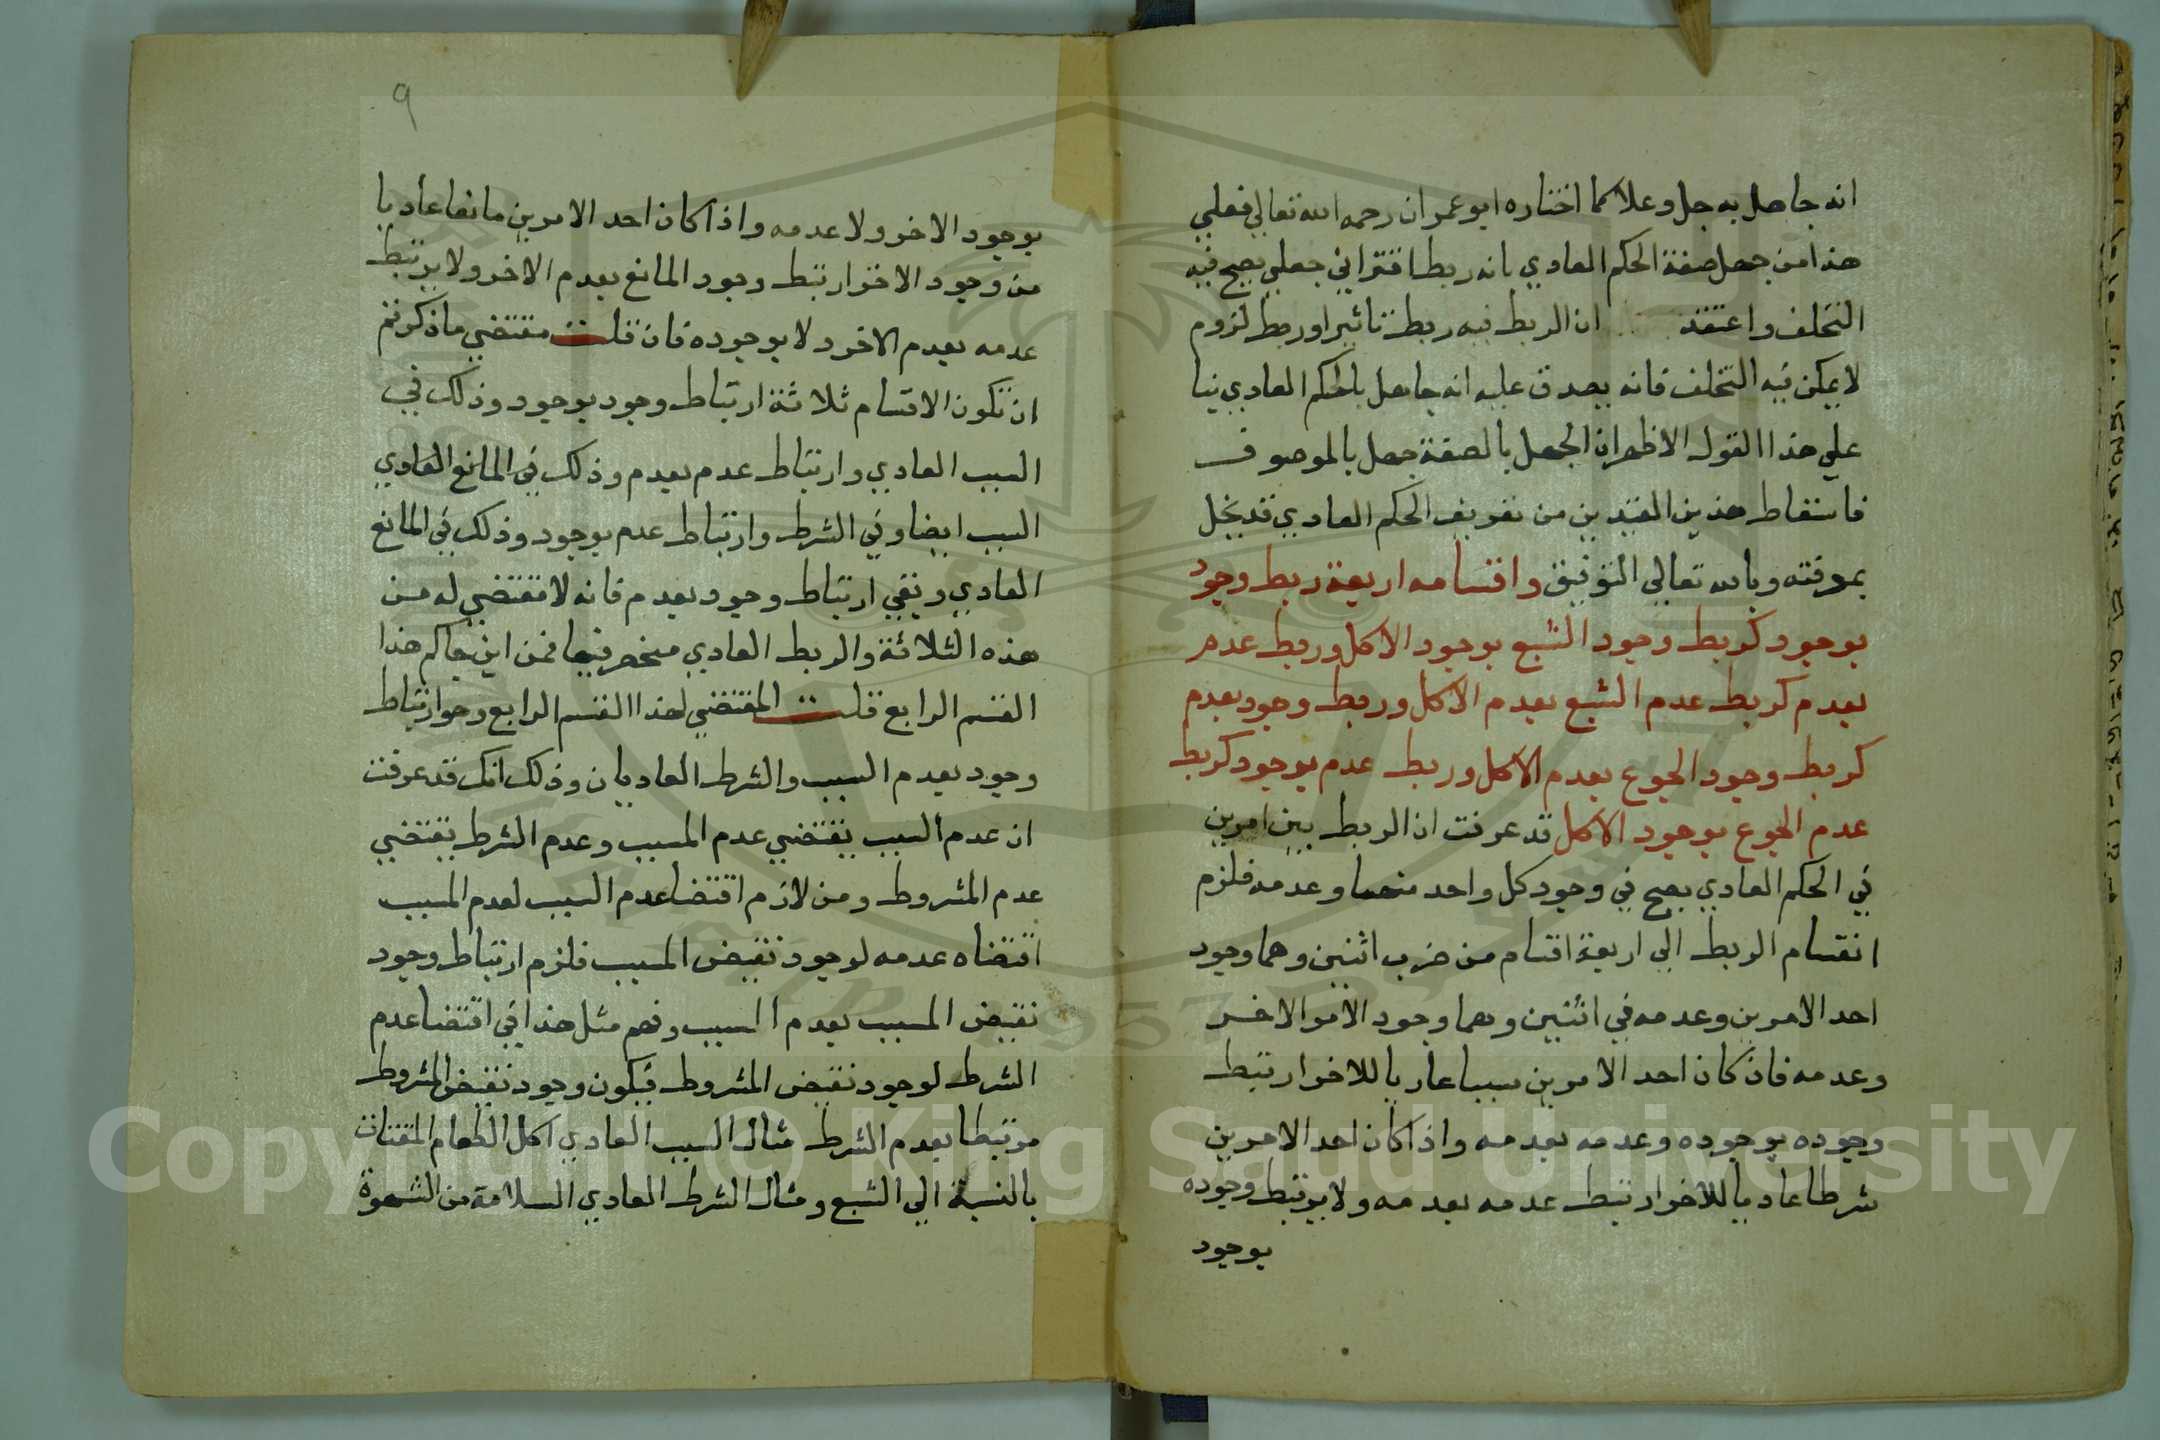 انه جاهل به جل وعلا كما اختاره ابو عمران رحمه الله تعالي فعلي
هذا من جهل صفة الحكم العادي بانه ربط اقتراني جعلي يصح فيه
التخلف واعتقد ان الربط فيه ربط تاثير او ربط لزوم
لا يمكن فيه التخلف فانه يصدق عليه انه جاهل بالحكم العادي بنا
علي هذا القول الاظهر ان الجهل بالصفة جهل بالموصوف
فاسقاط هذين القيدين من تعريف الحكم العادي قد يخل
بمعرفته وبالله تعالي التوفيق واقسامه اربعة ربط وجود
بوجود كربط وجود الشبع بوجود الاكل وربط عدم
بعدم كربط عدم الشبع بعدم الاكل وربط وجود بعدم
كربط وجود الجوع بعدم الاكل وربط عدم بوجود كربط
عدم الجوع بوجود الاكل قد عرفت ان الربط بين امرين
في الحكم العادي يصح في وجود كل واحد منهما وعدمه فلزم
انقسام الربط الي اربعة اقسام من ضرب اثنين وهما وجود
احد الامرين وعدمه في اثنين وهما وجود الامر الاخر
وعدمه فان كان احد الامرين سببا عاديا للاخر ارتبط
وجوده بوجوده وعدمه بعدمه واذا كان احد الامرين
شرطا عاديا للاخر ارتبط عدمه بعدمه ولا يرتبط وجوده
بوجود
٩
بوجود الاخر ولا عدمه واذا كان احد الامرين مانعا عاديا
من وجود الاخر ارتبط وجود المانع بعدم الاخر ولا يرتبط
عدمه بعدم الاخر ولا بوجوده فان قلت مقتضي ما ذكرتم
ان تكون الاقسام ثلاثة ارتباط وجود بوجود وذلك في
السبب العادي وارتباط عدم بعدم وذلك في المانع العادي
السبب ايضا وفي الشرط وارتباط عدم بوجود وذلك في المانع
العادي وبقي ارتباط وجود بعدم فانه لا مقتضي له من
هذه الثلاثة والربط العادي منحصر فيها فمن اين جاكم هذا
القسم الرابع قلت المقتضي لهذا القسم الرابع وهو ارتباط
وجود بعدم السبب والشرط العاديان وذلك انك قد عرفت
ان عدم السبب يقتضي عدم المسبب وعدم الشرط يقتضي
عدم المشروط ومن لازم اقتضا عدم السبب لعدم المسبب
اقتضاه عدمه لوجود نقيض المسبب فلزم ارتباط وجود
نقيض المسبب بعدم السبب وفهم مثل هذا في اقتضا عدم
الشرط لوجود نقيض المشروط فيكون وجود نقيض المشروط
مرتبطا بعدم الشرط مثال السبب العادي اكل الطعام المقتات
بالنسبة الي الشبع ومثال الشرط العادي السلامة من الشهوة
Copyright © King Saud University